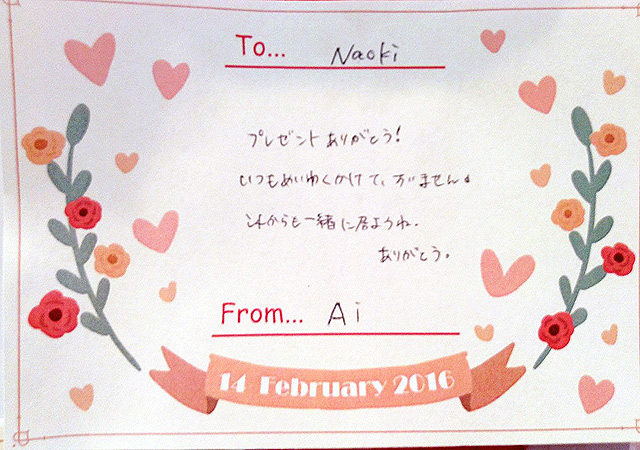 To... Naoki
プレゼントありがとう!
いつもめいわくかけて、すいません。
これからも一緒に居ようね.
ありがとう。
From... Ai
14 February 2016